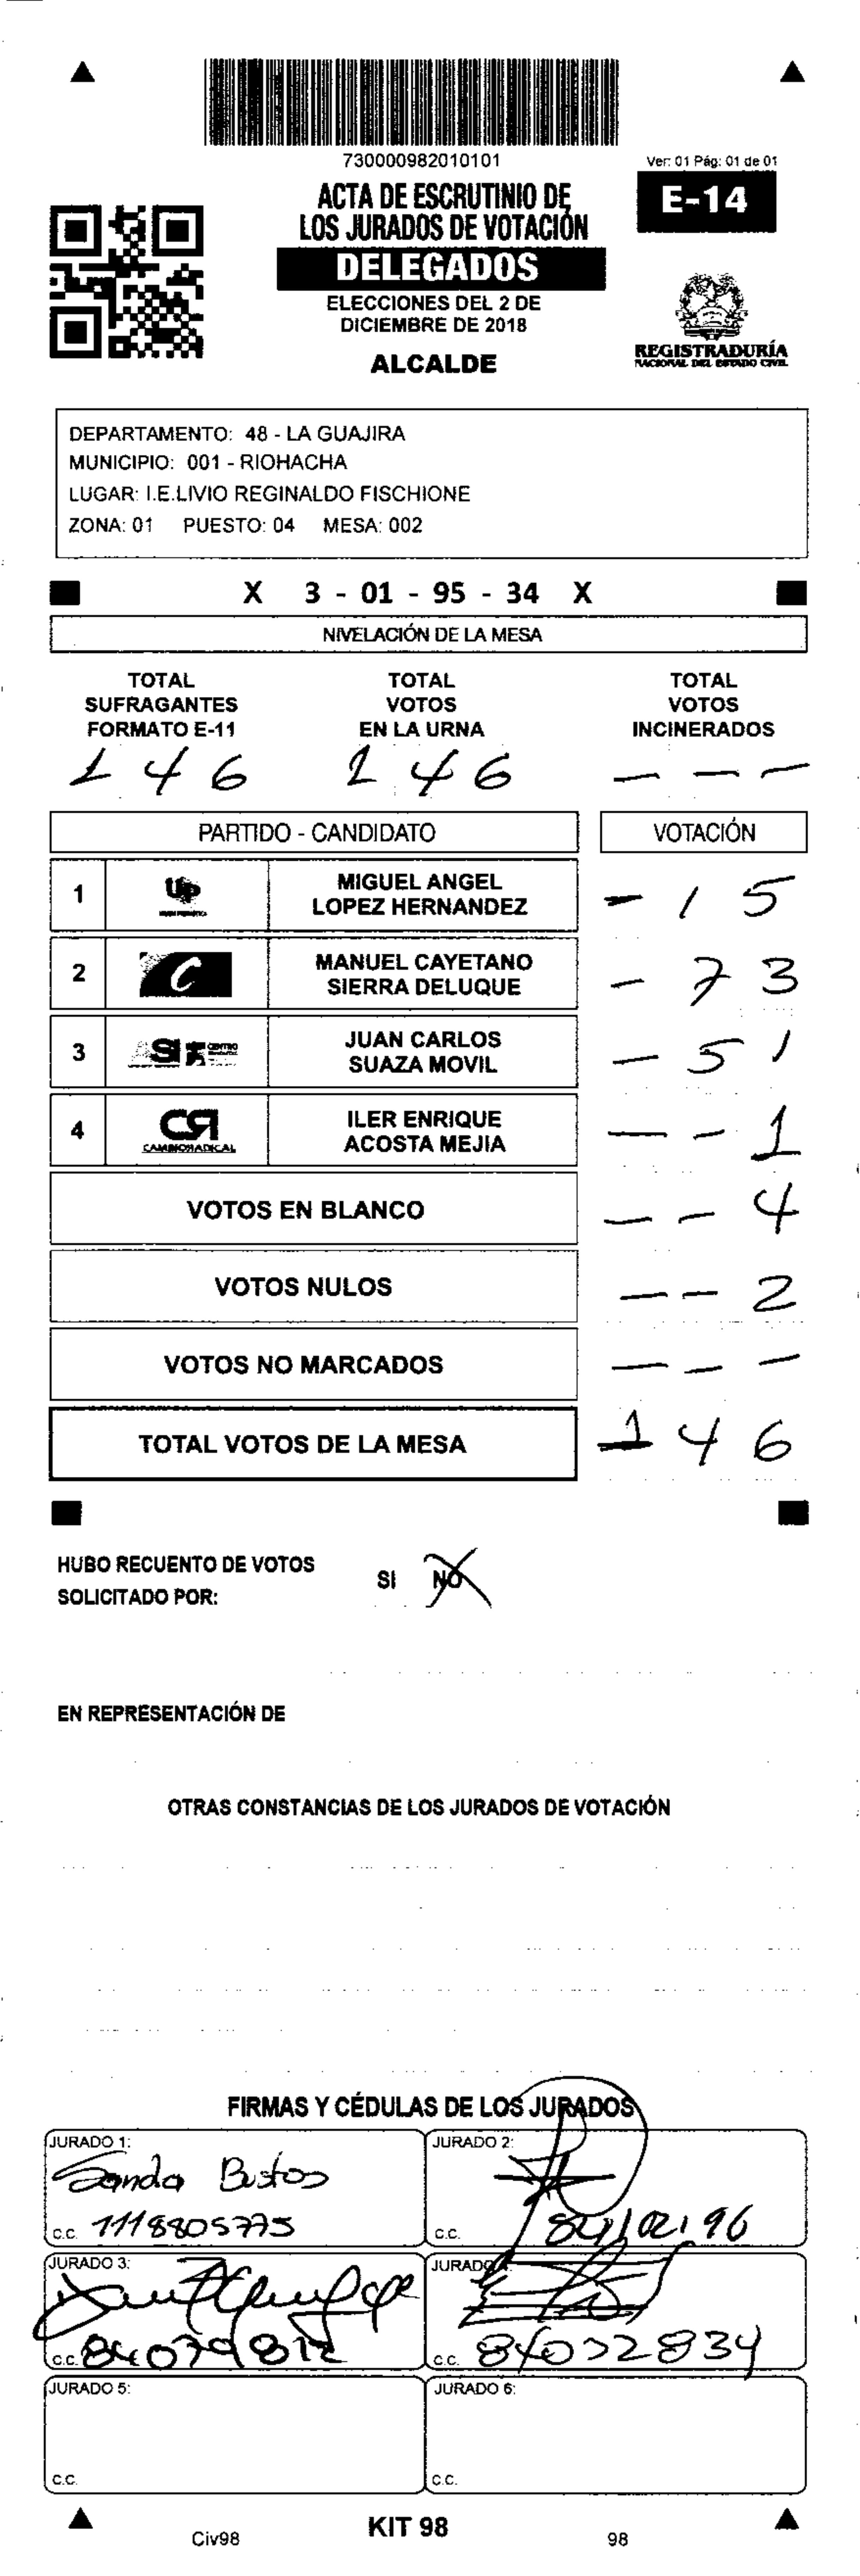 730000982010101
Ver: 01 Pág: 01 de 01
ACTA DE ESCRUTINIO DE
LOS JURADOS DE VOTACIÓN
E-14
DELEGADOS
ELECCIONES DEL 2 DE
DICIEMBRE DE 2018
ALCALDE
REGISTRADURÍA
NACIONAL DEL ESTADO CIVIL
DEPARTAMENTO: 48 - LA GUAJIRA
MUNICIPIO: 001 - RIOHACHA
LUGAR: I.E.LIVIO REGINALDO FISCHIONE
ZONA: 01 PUESTO: 04 MESA: 002
X 3 - 01 - 95 - 34 X
NIVELACIÓN DE LA MESA
TOTAL SUFRAGANTES FORMATO E-11
TOTAL VOTOS EN LA URNA
TOTAL VOTOS INCINERADOS
146 146 - - -
PARTIDO - CANDIDATO VOTACIÓN
1 Up MIGUEL ANGEL LOPEZ HERNANDEZ - 1 5
2 C MANUEL CAYETANO SIERRA DELUQUE - 7 3
3 ASI CENTRO JUAN CARLOS SUAZA MOVIL - 5 1
4 CR CAMBIO RADICAL ILER ENRIQUE ACOSTA MEJIA - - 1
VOTOS EN BLANCO - - 4
VOTOS NULOS - - 2
VOTOS NO MARCADOS - - -
TOTAL VOTOS DE LA MESA 1 4 6
HUBO RECUENTO DE VOTOS SI NO
SOLICITADO POR:
EN REPRESENTACIÓN DE
OTRAS CONSTANCIAS DE LOS JURADOS DE VOTACIÓN
FIRMAS Y CÉDULAS DE LOS JURADOS
JURADO 1:
Sanda Bustos
C.C. 1118805775
JURADO 2:
C.C. 84102196
JURADO 3:
C.C. 84079812
JURADO 4:
C.C. 84072834
JURADO 5:
C.C.
JURADO 6:
C.C.
Civ98
KIT 98
98